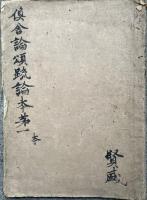 倶舎論頌䟽論本第一 本
賢盛